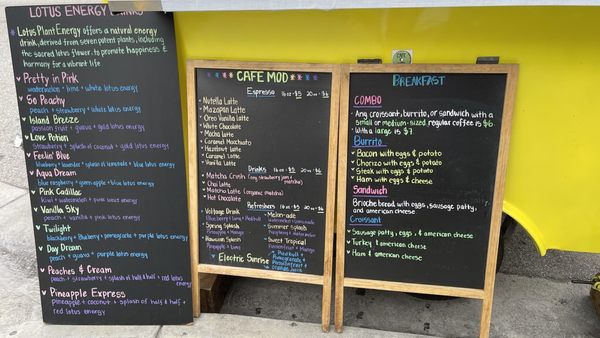 LOTUS ENERGY DRINKS
Lotus Plant Energy offers a natural energy
drink, derived from seven patent plants, including
the sacred lotus flower, to promote happiness &
harmony for a vibrant life
Pretty in Pink
watermelon + lime + white lotus energy
So Peachy
peach + strawberry + white lotus energy
Island Breeze
passion fruit + guava + gold lotus energy
Love Potion
strawberry + splash of coconut + gold lotus energy
Feelin' Blue
blueberry + lavender + splash of lemonade + blue lotus energy
Aqua Dream
blue raspberry + green apple + blue lotus energy
Pink Cadillac
Kiwi + watermelon + pink lotus energy
Vanilla Sky
peach + vanilla + pink lotus energy
Twilight
blackberry + blueberry + pomegranate + purple lotus energy
Day Dream
peach + guava + purple lotus energy
Peaches & Cream
peach + strawberry + splash of half & half + red lotus
energy
Pineapple Express
pineapple + coconut + splash of half & half +
red lotus energy
CAFE MOD
Espresso 16oz $5 20oz $6
Nutella Latte
Mazapan Latte
Oreo Vanilla Latte
White Chocolate
Mocha Latte
Caramel Macchiato
Hazelnut Latte
Caramel Latte
Vanilla Latte
Drinks
Matcha Crush (strawberry jam +
matcha)
Chai Latte
Matcha Latte (organic matcha)
Hot Chocolate
Refreshers
Voltage Drink
Spring Splash
Hawaiian Splash
Melon-ade
Summer Splash
Sweet Tropical
Electric Sunrise
BREAKFAST
COMBO
Any croissant, burrito, or sandwich with a
small or medium-sized regular coffee is $6
With a large is $7
Burrito
Bacon with eggs & potato
Chorizo with eggs & potato
Steak with eggs & potato
Ham with eggs & cheese
Sandwich
Brioche bread with eggs, sausage patty,
and american cheese
Croissant
Sausage patty, eggs, & american cheese
Turkey & american cheese
Ham & american cheese